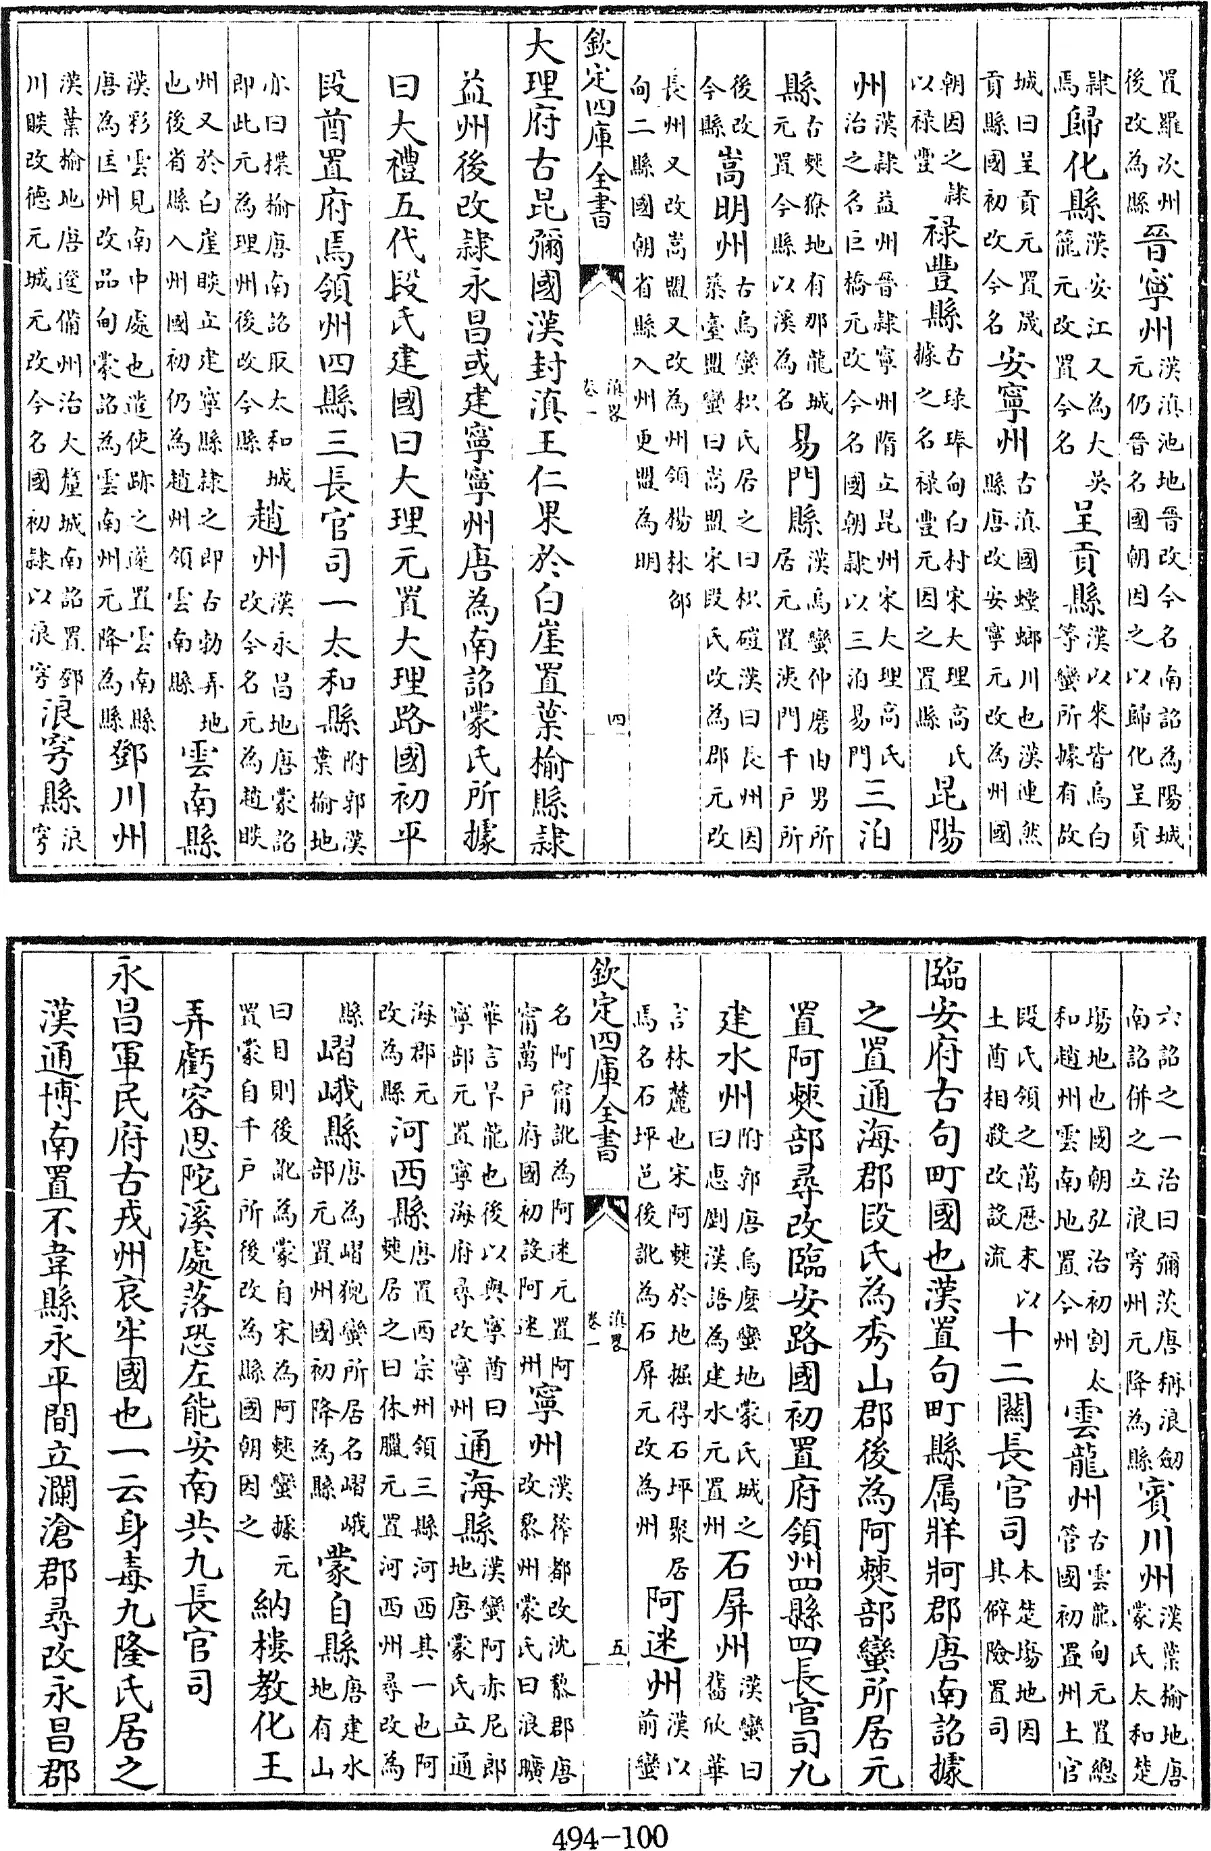 置羅次州後改為縣晉寧州漢滇池地晉改今名南詔為陽城元仍晉名國朝因之以歸化呈貢
隸焉歸化縣漢安江又為大吴籠元改置今名呈貢縣漢以來皆烏白等蠻所據有故
城曰呈貢元置晟貢縣國初改今名安寧州古滇國螳螂川也漢連然縣唐改安寧元改為州國
朝因之隸以禄豐禄豐縣古琭琫甸白村宋大理高氏據之名禄豐元因之置縣昆陽
州漢隸益州晉隸寧州隋立昆州宋大理高氏治之名巨橋元改今名國朝隸以三泊易門三泊
縣古僰獠地有那龍城元置今縣以溪為名易門縣漢烏蠻仲磨由男所居元置洟門千戸所
後改今縣嵩明州古烏蠻枳氏居之曰枳磑漢曰長州因築臺盟蠻曰嵩盟宋段氏改為郡元改
長州又改嵩盟又改為州領楊林邵甸二縣國朝省縣入州更盟為明
欽定四庫全書 滇畧 卷一 四
大理府古昆彌國漢封滇王仁果於白崖置葉榆縣隸
益州後改隸永昌或建寧寧州唐為南詔蒙氏所據
曰大禮五代段氏建國曰大理元置大理路國初平
段酋置府焉領州四縣三長官司一太和縣附郭漢葉榆地
亦曰楪榆唐南詔取太和城即此元為理州後改今縣趙州漢永昌地唐蒙詔改今名元為趙瞼
州又於白崖瞼立建寧縣隸之即古勃弄地也後省縣入州國初仍為趙州領雲南縣雲南縣
漢彩雲見南中處也遣使跡之遂置雲南縣唐為匡州改品甸蒙詔為雲南州元降為縣鄧川州
漢葉榆地唐邆備州治大釐城南詔置鄧川瞼改德元城元改今名國初隸以浪穹浪穹縣浪穹
六詔之一治曰彌茨唐稱浪劒南詔併之立浪穹州元降為縣賓川州漢葉榆地唐蒙氏太和楚
塲地也國朝弘治初割太和趙州雲南地置今州雲龍州古雲龍甸元置總管國初置州土官
段氏領之萬厯末以土酋相殺改設流十二關長官司本楚塲地因其僻險置司
臨安府古句町國也漢置句町縣属牂牁郡唐南詔據
之置通海郡段氏為秀山郡後為阿僰部蠻所居元
置阿僰部尋改臨安路國初置府領州四縣四長官司九
建水州附郭唐烏麽蠻地蒙氏城之曰惠𠠝漢語為建水元置州石屏州漢蠻曰舊欣華
言林麓也宋阿僰於地掘得石坪聚居焉名石坪邑後訛為石屏元改為州阿迷州漢以前蠻
欽定四庫全書 滇畧 卷一 五
名阿甯訛為阿迷元置阿甯萬戸府國初設阿迷州寧州漢莋都改沈黎郡唐改黎州蒙氏曰浪曠
華言旱龍也後以與寧酋曰寧部元置寧海府尋改寧州通海縣漢蠻阿赤尼郎地唐蒙氏立通
海郡元改為縣河西縣唐置西宗州領三縣河西其一也阿僰居之曰休臘元置河西州尋改為
縣嶍峨縣唐為嶍猊蠻所居名嶍峨部元置州國初降為縣蒙自縣唐建水地有山
曰目則後訛為蒙自宋為阿僰蠻據元置蒙自千戸所後改為縣國朝因之納樓教化王
弄虧容思陀溪處落恐左能安南共九長官司
永昌軍民府古戎州哀牢國也一云身毒九隆氏居之
漢通博南置不韋縣永平間立瀾滄郡尋改永昌郡
494-100